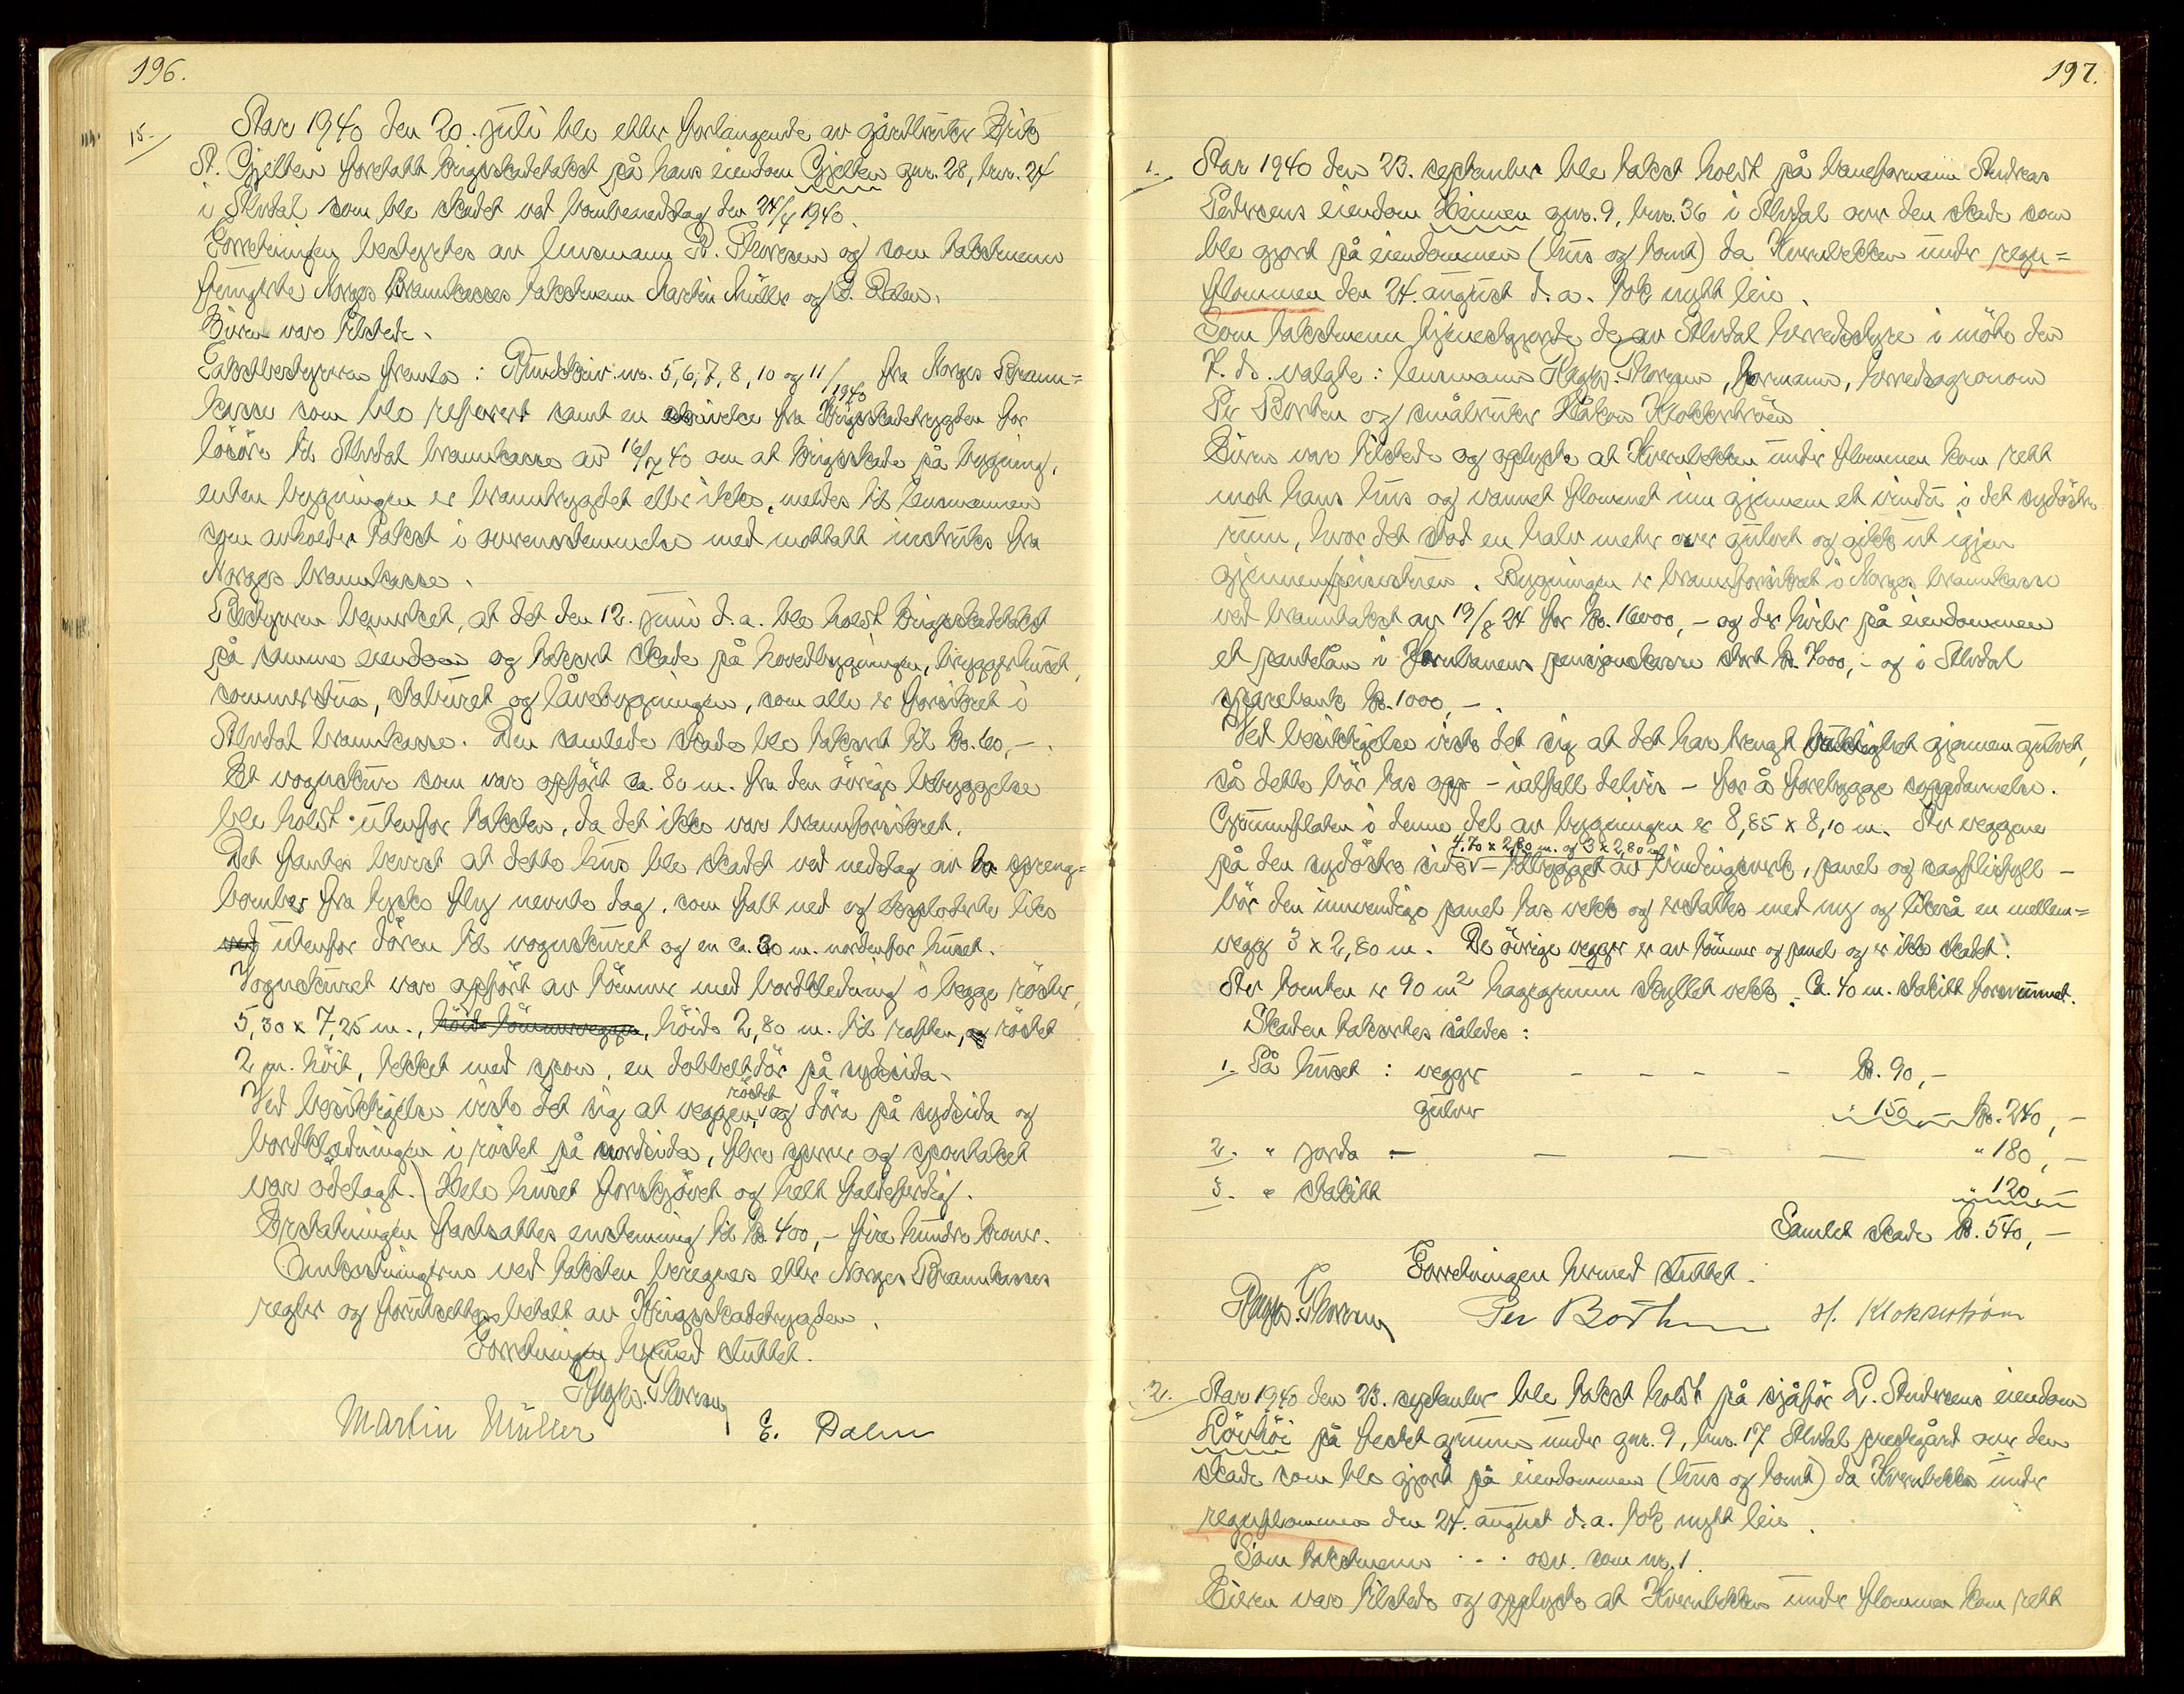 196.
15. År 1940 den 20. juli ble etter forlangende av gårdbruker Eirik
St. Gjelten foretatt krigsskadetakst på hans eiendom Gjelten gnr. 28, bnr. 24
i Alvdal som ble skadet ved bombenedslag den 24/4 1940.
Forretningen bestyrtes av lensmann R. Thoresen og som takstmenn
fungerte Norges Brannkasses takstmenn Martin Müller og E. Dalen.
Eieren var tilstede.
Takstbestyreren fremla: Rundskriv nr. 5, 6, 7, 8, 10 og 11/1940 fra Norges Brann=
kasse som ble referert samt en skrivelse fra Krigsskadetrygden for
lösöre til Alvdal brannkasse av 16/7 40 om at krigsskade på bygning,
enten bygningen er branntrygdet eller ikke, meldes til lensmannen
som avholder takst i overensstemmelse med mottatt instruks fra
Norges brannkasse.
Bestyreren bemerket, at det den 12. juni d.a. ble holdt krigsskadetakst
på samme eiendom og taksert skade på hovedbygningen, bryggerhuset,
sommerstua, staburet og låvebygningen, som alle er forsikret i
Alvdal brannkasse. Den samlede skade ble taksert til kr. 60,-.
Et vognskur som var oppfört ca. 80 m. fra den övrige bebyggelse
ble holdt utenfor taksten, da det ikke var brannforsikret.
Det fantes bevist at dette hus ble skadet ved nedslag av to spreng=
bomber fra tyske fly nevnte dag, som falt ned og eksploderte like
ved utenfor dören til vognskuret og en ca. 30 m. nordenfor huset.
Vognskuret var oppfört av tömmer med bordkledning i begge röster,
5,30 x 7,25 m., höide tömmervegger, höide 2,80 m. til raften, og röstet
2 m. höit, tekket med spon, en dobbelt dör på sydsida.
Ved besiktigelse viste det sig at veggen, röstet og döra på sydsida og
bordkledningen i röstet på nordsida, flere sperrer og spontaket
var ödelagt. Hele huset forskjövet og helt faldeferdig.
Erstatningen fastsattes enstemmig til kr. 400,- fire hundre kroner.
Omkostningerne ved taksten beregnes etter Norges Brannkasses
regler og forutsettes betalt av Krigsskadetrygden.
Forretningen hermed sluttet.
Thoresen
Martin Müller E. Dalen
197.
1. År 1940 den 23. september ble takst holdt på baneformann Andreas
Pedersens eiendom Heimen gnr. 9, bnr. 36 i Alvdal over den skade som
ble gjort på eiendommen (hus og tomt) da Kvernbekken under regn=
flommen den 24. august d.a. tok nytt leie.
Som takstmenn tjenestgjorde de av Alvdal herredstyre i möte den
7. ds. valgte: lensmann Thoresen, formann, herredsagronom
Per Borten og småbruker Håkon Klokkerström
Eieren var tilstede og oplyste at Kvernbekken under flommen kom rett
mot hans hus og vannet flommet inn gjennem et vindu i det sydöstre
rum, hvor det stod en halv meter over gulvet og gikk ut igjen
gjennem peisestuen. Bygningen er brannforsikret i Norges brannkasse
ved branntakst av 19/8 24 for kr. 16000,- og der hviler på eiendommen
et pantelån i Jernbanens pensjonskasse stort kr. 7000,- og i Alvdal
sparebank kr. 1000,-.
Ved besiktigelse viste det sig at det har trengt fuktighet gjennem gulvet,
så dette bör tas opp - ialfall delvis - for å forebygge soppdannelse.
Grunnflaten i denne del av bygningen er 8,85 x 8,10 m. Av veggene
4,70 x 2,80 m. og 3 x 2,80 m.
på den sydöstre side - tilbygget av bindingsverk, panel og sagflisfyll -
bör den innvendige panel tas vekk og erstattes med ny og likeså en mellem=
vegg 3 x 2,80 m. De övrige vegger er av tömmer og panel og er ikke skadet.
Av tomten er 90 m2 hagegrunn skyllet vekk. Ca. 40 m. stakitt forsvunnet.
Skaden taksertes således:
1. På huset: vegger - - - - kr. 90,-
gulver " 150 - kr. 240,-
2. " jorda - - - - " 180,-
3. " stakitt " 120,-
Samlet skade kr. 540,-
Forretningen hermed sluttet.
Thoresen Per Borten H. Klokkerström
2. År 1940 den 23. september ble takst holdt på sjåför L. Andersens eiendom
Lövhöi på festet grunn under gnr. 9, bnr. 17 Alvdal prestegård over den
skade som ble gjort på eiendommen (hus og tomt) da Kvernbekken under
regnflommen den 24. august d.a. tok nytt leie.
Som takstmenn . - . osv. som nr. 1.
Eieren var tilstede og opplyste at Kvernbekken under flommen kom rett